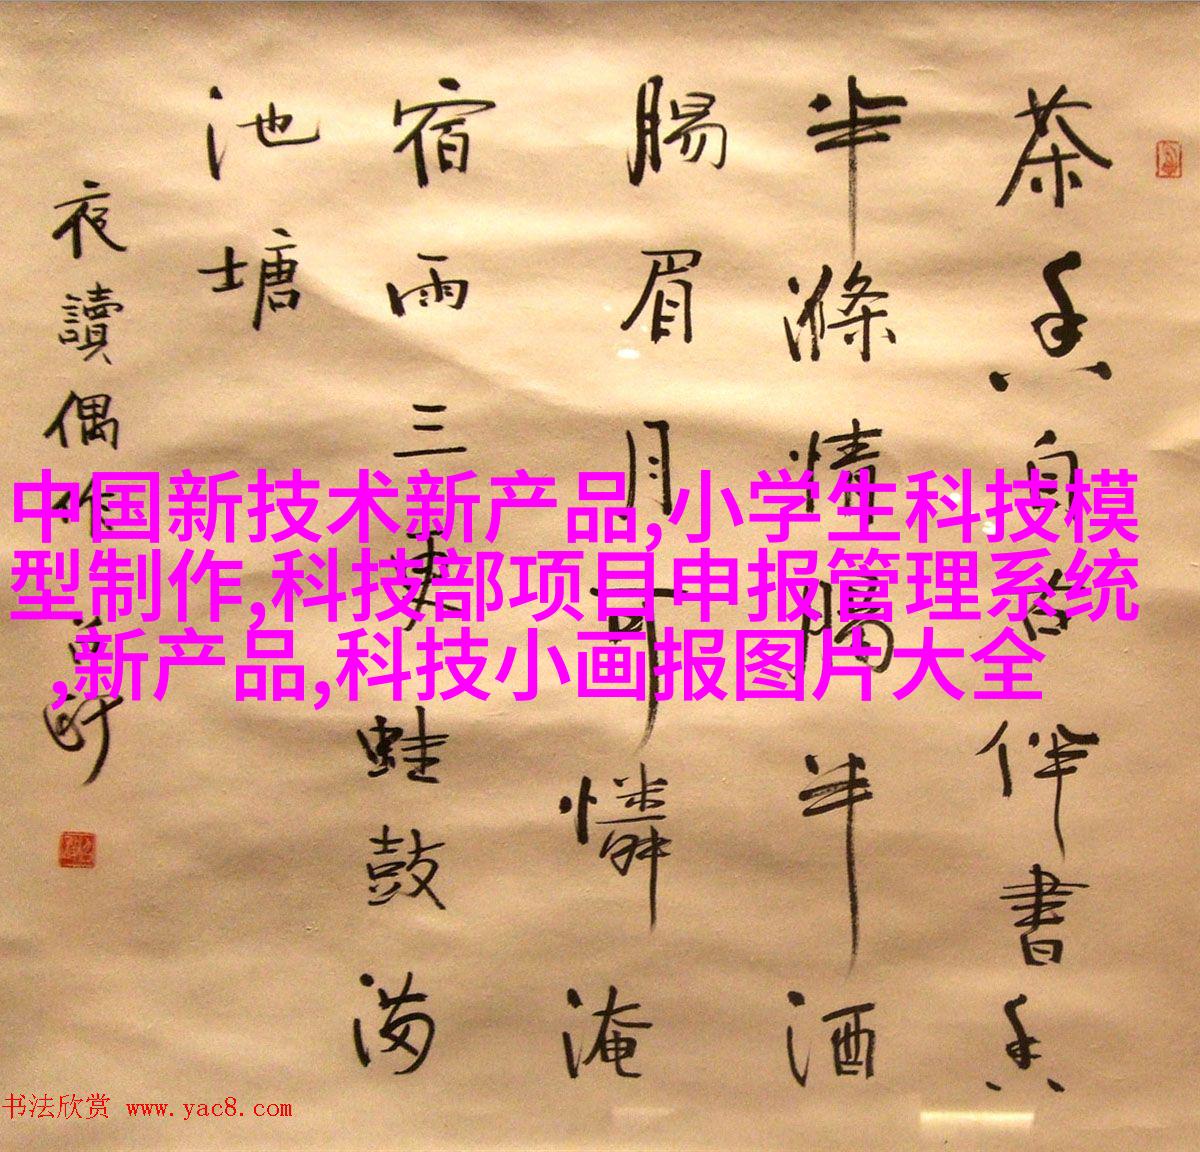 茶香自伴書香
半滌情半酒
腸眉月可憐淹
宿雨三更蛙鼓滿
池塘
夜讀偶作
中国新技术新产品,小学生科技模
型制作,科技部项目申报管理系统
,新产品,科技小画报图片大全
书法欣赏 www.yac8.com